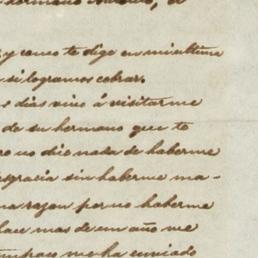 hermano Antonio, el
y como te digo en mi ultima
si logramos cobrar.
e dias vino á visitarme
de su hermano que te
ro no dió nada de haberme
esgracia sin haberme ma-
na razon por no haberme
hace mas de un año me
tampoco me ha enviado